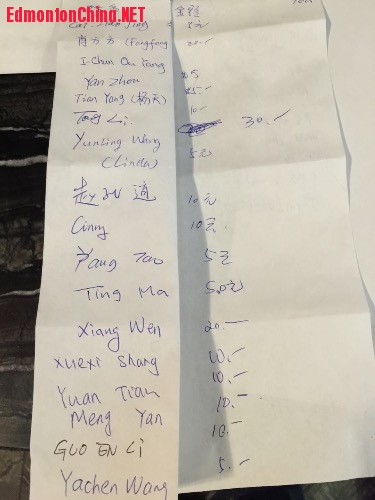 EdmontonChina.NET
金额
肖方方 (Fangfang 20.—
I-Chun Ou Yang
Yan Zhou
Tian Yang (杨天) 10.—
Li 30.—
Yunjing Wang 5元
(Linda)
赵 10元
Cinny 10元
Yang Tao 5元
Ting Ma
Xiang Wen 20.—
Xuexi Shang 10.—
10.—
Yuan Tian 10.—
Meng Yan 10.—
GUO EN Li 5.—
Yachen Wang